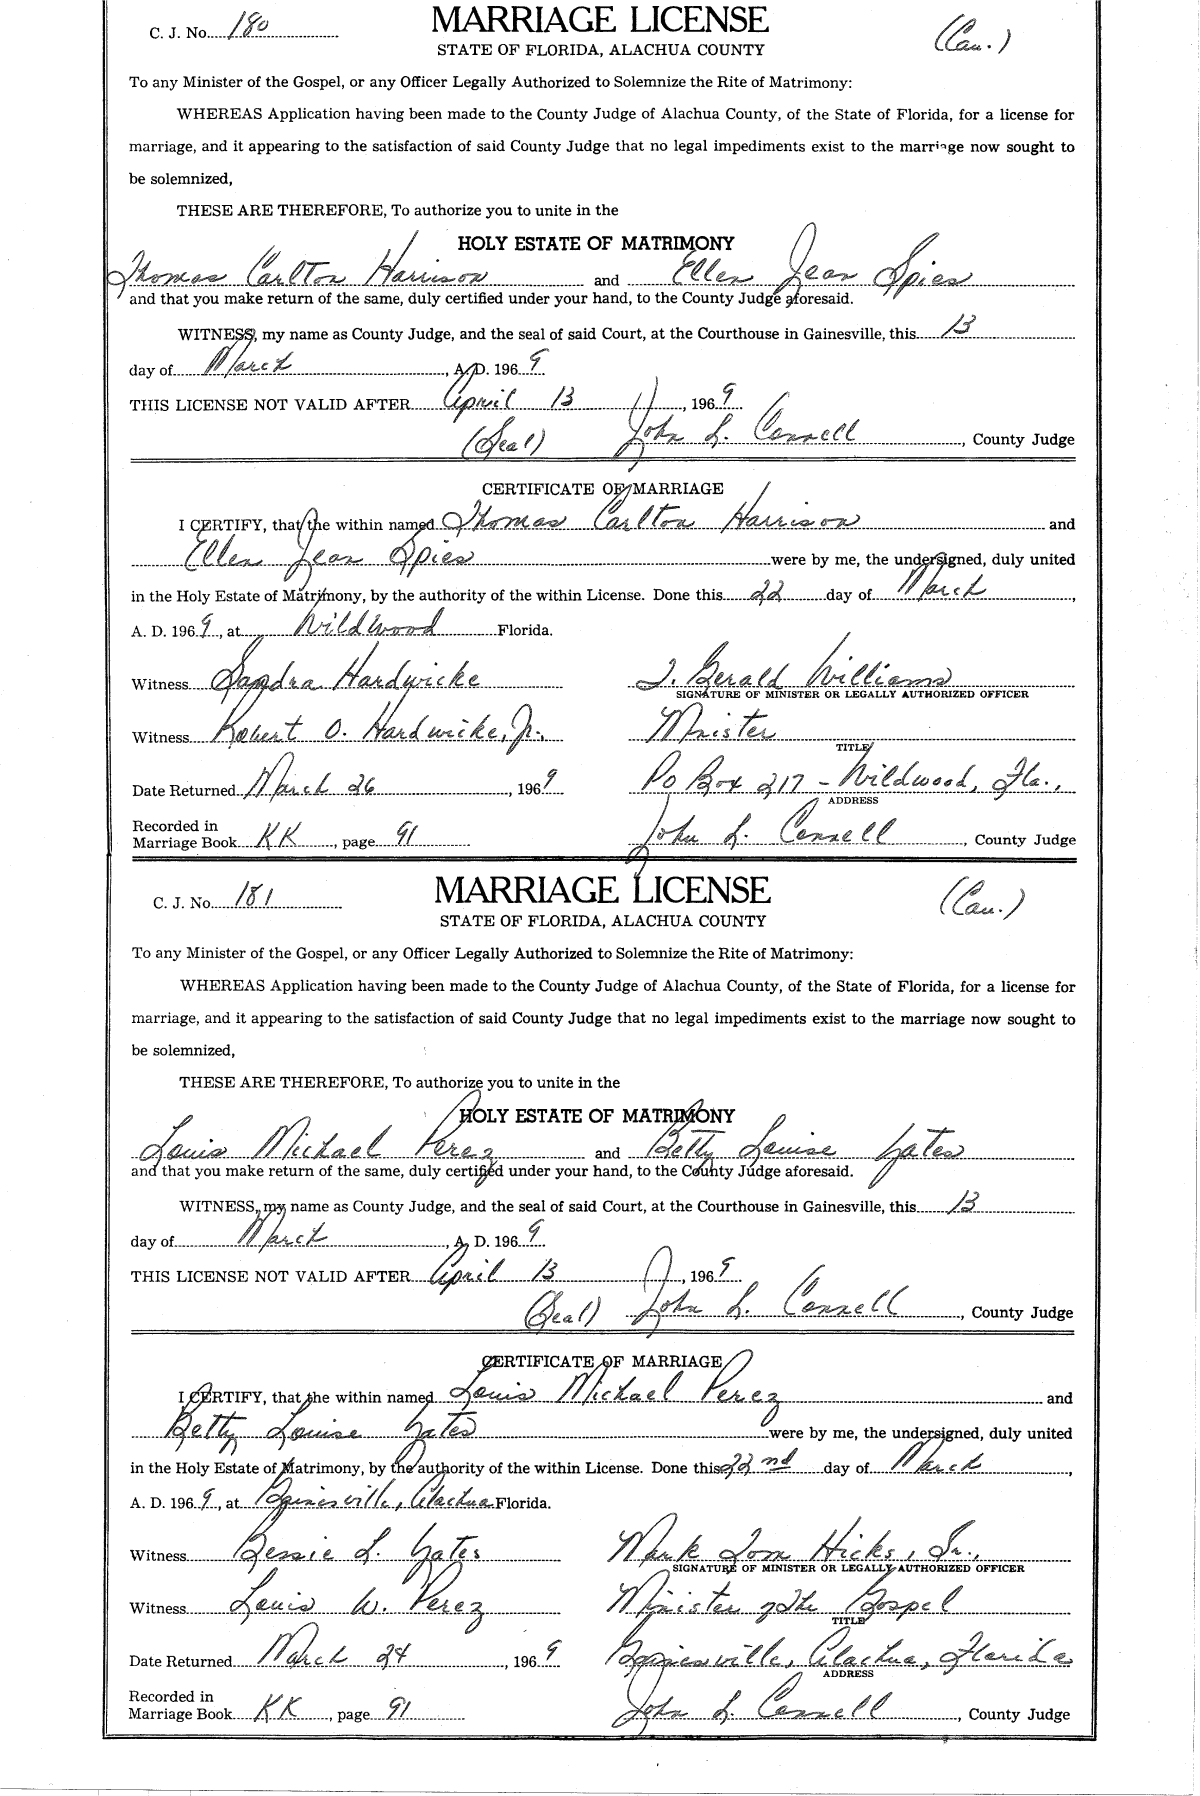 C. J. No. 180 MARRIAGE LICENSE (Cau.)
STATE OF FLORIDA, ALACHUA COUNTY
To any Minister of the Gospel, or any Officer Legally Authorized to Solemnize the Rite of Matrimony:
WHEREAS Application having been made to the County Judge of Alachua County, of the State of Florida, for a license for
marriage, and it appearing to the satisfaction of said County Judge that no legal impediments exist to the marriage now sought to
be solemnized,
THESE ARE THEREFORE, To authorize you to unite in the
HOLY ESTATE OF MATRIMONY
Thomas Carlton Harrison and Ellen Jean Spies
and that you make return of the same, duly certified under your hand, to the County Judge aforesaid.
WITNESS, my name as County Judge, and the seal of said Court, at the Courthouse in Gainesville, this 13
day of March, A. D. 1969
THIS LICENSE NOT VALID AFTER April 13, 1969
(Seal) John L. Connell, County Judge
CERTIFICATE OF MARRIAGE
I CERTIFY, that the within named Thomas Carlton Harrison and
Ellen Jean Spies were by me, the undersigned, duly united
in the Holy Estate of Matrimony, by the authority of the within License. Done this 22 day of March,
A. D. 1969, at Wildwood Florida.
Witness Sandra Hardwicke J. Gerald Williams
SIGNATURE OF MINISTER OR LEGALLY AUTHORIZED OFFICER
Witness Robert O. Hardwicke, Jr., Minister
TITLE
Date Returned March 26, 1969 PO Box 217 - Wildwood, Fla.,
ADDRESS
Recorded in
Marriage Book KK, page 91 John L. Connell, County Judge
C. J. No. 181 MARRIAGE LICENSE (Cau.)
STATE OF FLORIDA, ALACHUA COUNTY
To any Minister of the Gospel, or any Officer Legally Authorized to Solemnize the Rite of Matrimony:
WHEREAS Application having been made to the County Judge of Alachua County, of the State of Florida, for a license for
marriage, and it appearing to the satisfaction of said County Judge that no legal impediments exist to the marriage now sought to
be solemnized,
THESE ARE THEREFORE, To authorize you to unite in the
HOLY ESTATE OF MATRIMONY
Louis Michael Perez and Betty Louise Yates
and that you make return of the same, duly certified under your hand, to the County Judge aforesaid.
WITNESS, my name as County Judge, and the seal of said Court, at the Courthouse in Gainesville, this 13
day of March, A. D. 1969
THIS LICENSE NOT VALID AFTER April 13, 1969
(Seal) John L. Connell, County Judge
CERTIFICATE OF MARRIAGE
I CERTIFY, that the within named Louis Michael Perez and
Betty Louise Yates were by me, the undersigned, duly united
in the Holy Estate of Matrimony, by the authority of the within License. Done this 22nd day of March,
A. D. 1969, at Gainesville, Alachua Florida.
Witness Bessie L. Yates Mark Tom Hicks, Sr.,
SIGNATURE OF MINISTER OR LEGALLY AUTHORIZED OFFICER
Witness Louis W. Perez Minister of the Gospel
TITLE
Date Returned March 24, 1969 Gainesville, Alachua, Florida
ADDRESS
Recorded in
Marriage Book KK, page 91 John L. Connell, County Judge